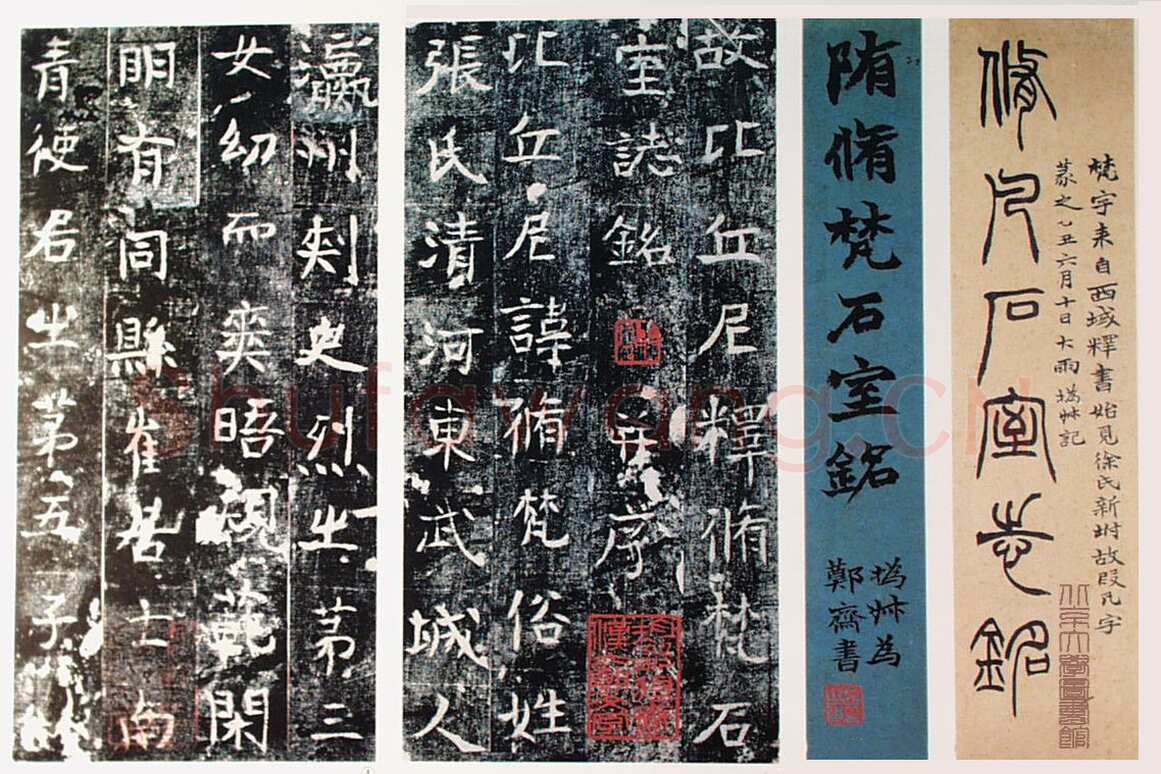 脩凡石室志銘
梵字来自西域釋書始見徐氏新坿故叚凡字
篆之乙丑六月十日大雨 撝尗記
北京大學圖書館
隋脩梵石室銘
撝尗為
鄭齋書
故比丘尼釋脩梵石
室誌銘 并序
比丘尼諱脩梵俗姓
張氏清河東武城人
瀛州刺史烈之第三
女幼而爽晤規範閑
明有同縣崔居士南
青使君之第五子
shufawang.cn